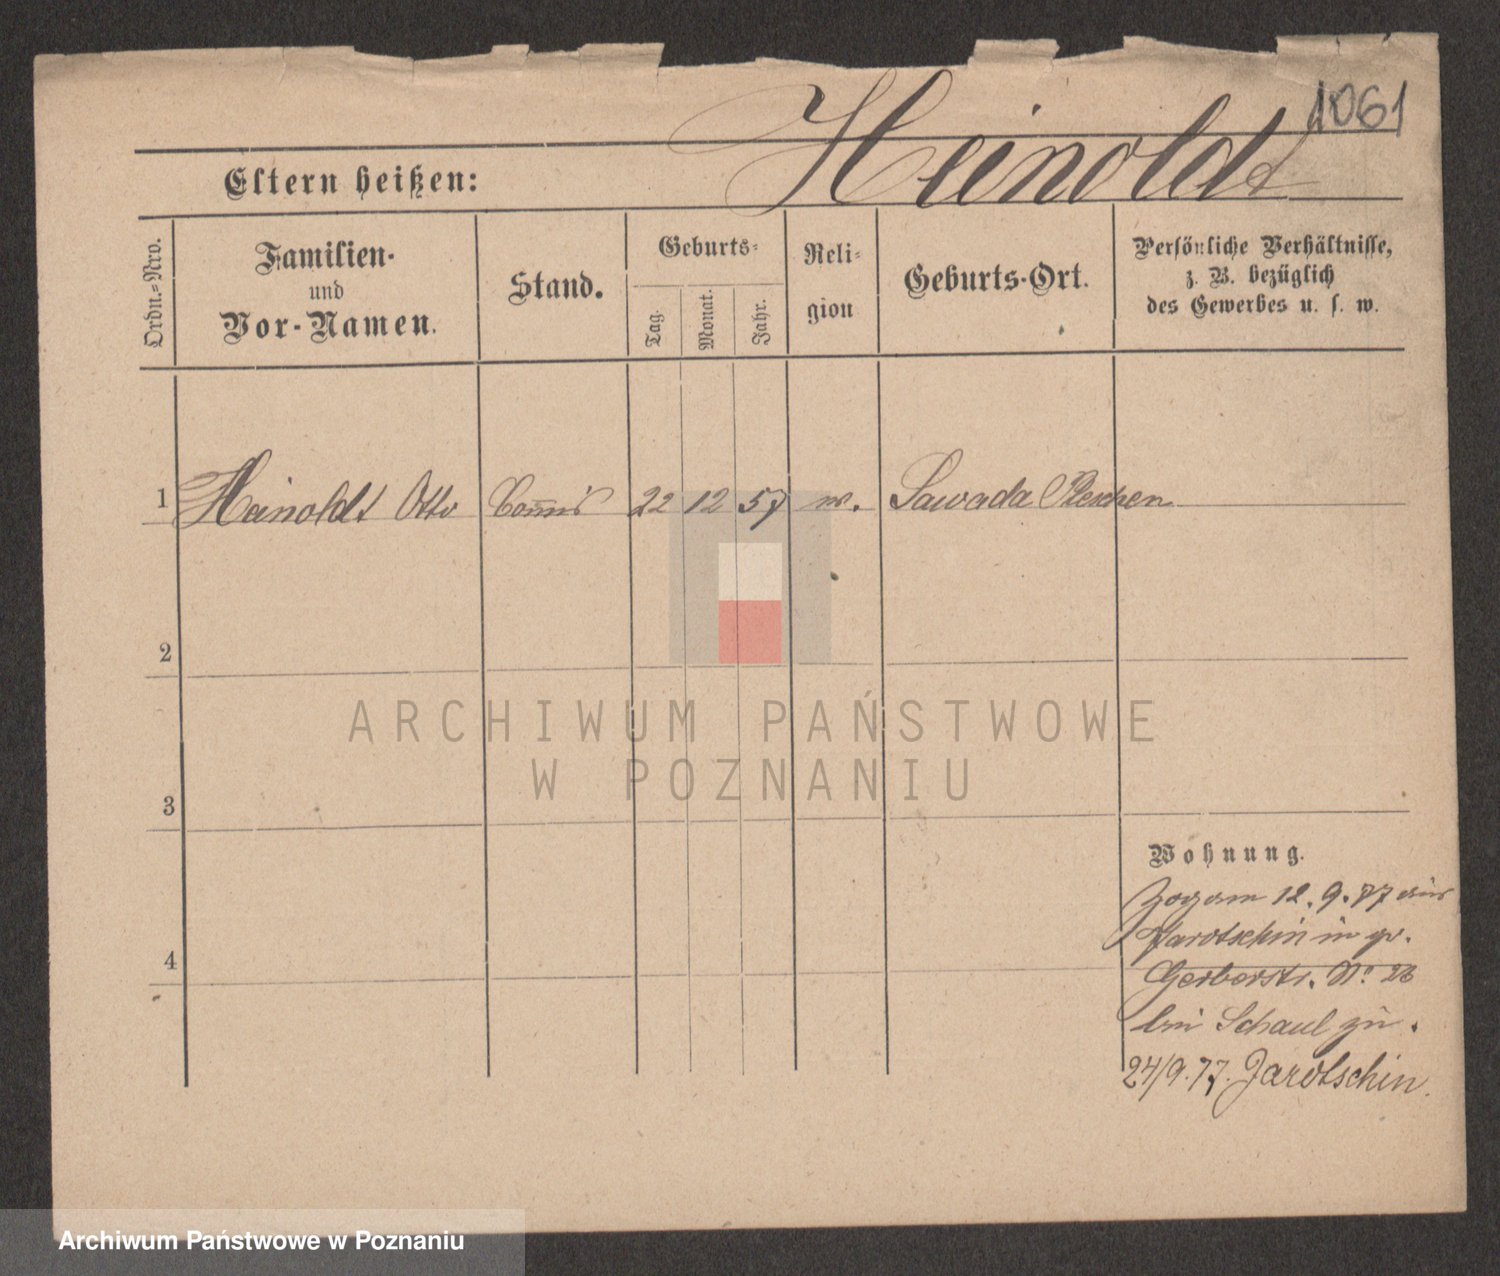 1061
Heinoldt
Eltern heißen:
Ordn.-Nro.
Familien-
und
Vor-Namen.
Stand.
Geburts-
Tag.
Monat.
Jahr.
Reli-
gion
Geburts-Ort.
Persönliche Verhältnisse,
z. B. bezüglich
des Gewerbes u. s. w.
1 Heinoldt Otto Commis 22 12 57 Sawada Pleschen
2
3
4
Wohnung.
Zog am 12. 9. 77 aus
Jarotschin in gr.
Gerberstr. No. 26
bei Schaul zu.
24/9. 77. Jarotschin.
ARCHIWUM PAŃSTWOWE
W POZNANIU
Archiwum Państwowe w Poznaniu